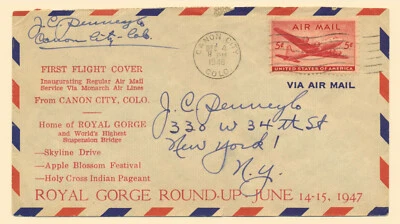 J.C. Penney Co
Canon City - Colo.
CANON CITY
COLO.
AIR MAIL
5¢ 5¢
UNITED STATES OF AMERICA
VIA AIR MAIL
FIRST FLIGHT COVER
Inaugurating Regular Air Mail
Service Via Monarch Air Lines
From CANON CITY, COLO.
Home of ROYAL GORGE
and World's Highest
Suspension Bridge
—Skyline Drive
—Apple Blossom Festival
—Holy Cross Indian Pageant
J.C. Penney Co
330 W 34th St
New York 1
N.Y.
ROYAL GORGE ROUND-UP-JUNE 14-15, 1947